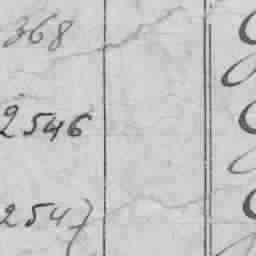 368
2546
2547